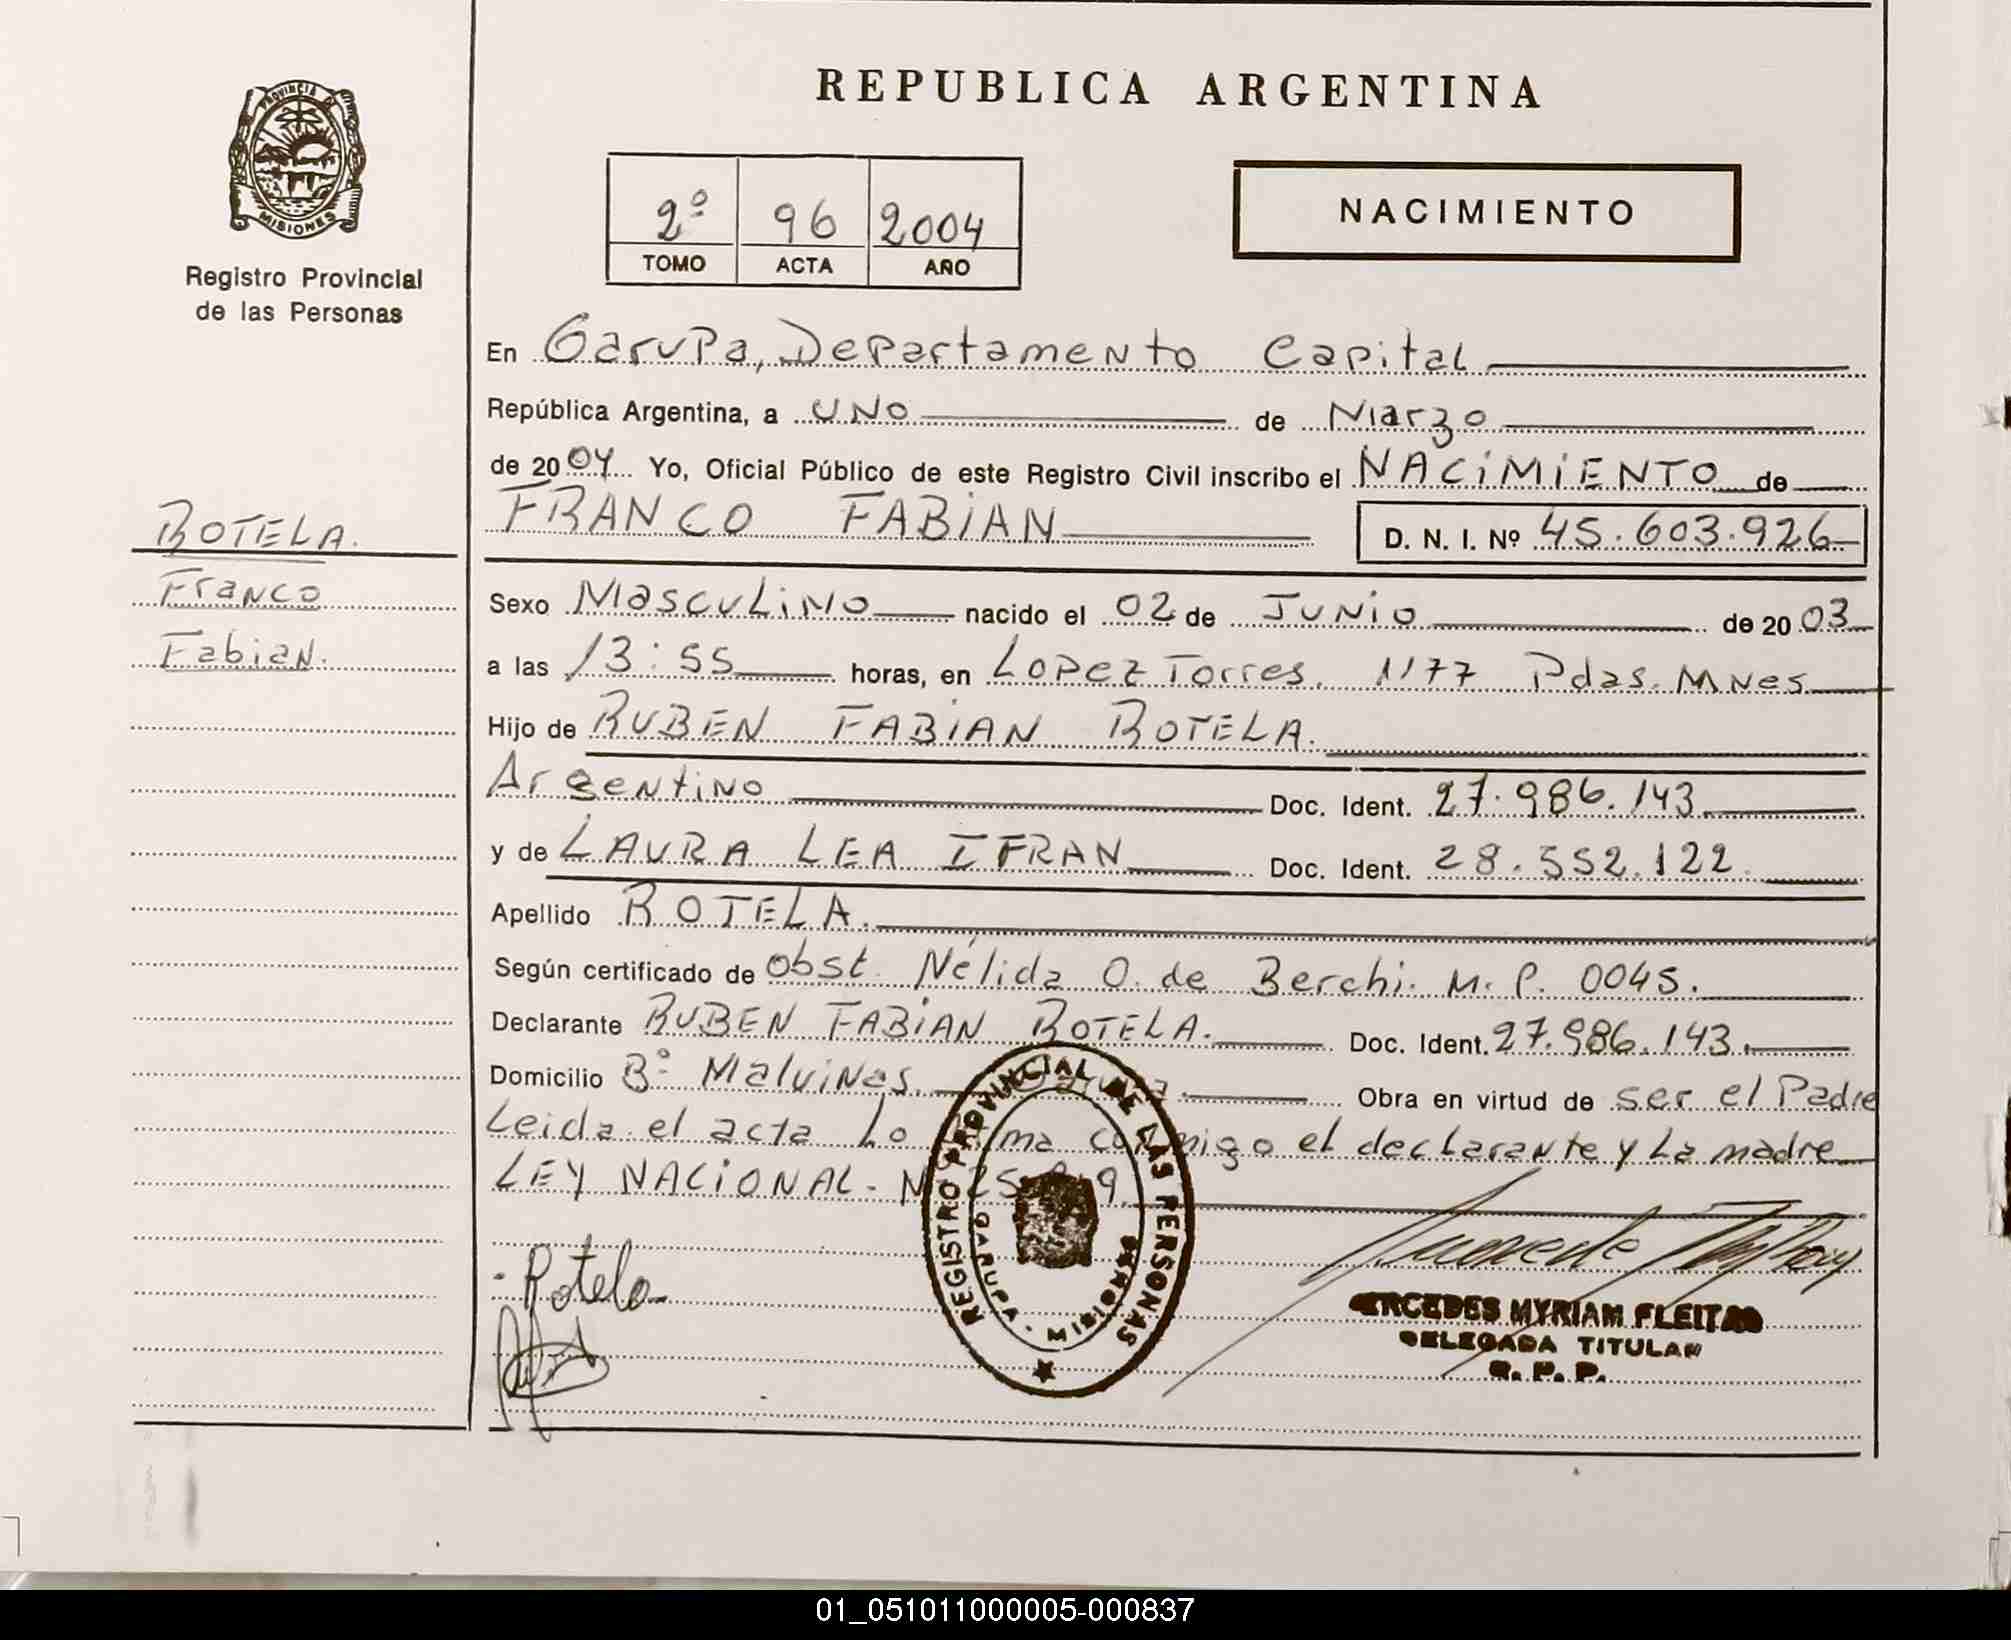 REPUBLICA ARGENTINA
PROVINCIA DE
MISIONES
Registro Provincial
de las Personas
2º 96 2004
TOMO ACTA AÑO
NACIMIENTO
En Garupa, Departamento Capital
República Argentina, a UNO de Marzo
de 2004 Yo, Oficial Público de este Registro Civil inscribo el NACIMIENTO de
FRANCO FABIAN D. N. I. Nº 45.603.926
BOTELA.
Franco
Fabian.
Sexo Masculino nacido el 02 de JUNIO de 2003
a las 13:55 horas, en Lopez Torres. 1177 Pdas. MNes
Hijo de RUBEN FABIAN BOTELA.
Argentino Doc. Ident. 27.986.143
y de LAURA LEA IFRAN Doc. Ident. 28.552.122
Apellido BOTELA.
Según certificado de obst. Nélida O. de Berchi. M. P. 0045.
Declarante RUBEN FABIAN BOTELA. Doc. Ident. 27.986.143.
Domicilio Bº Malvinas. Obra en virtud de ser el Padre
Leida el acta Lo conmigo el declarante y La madre
LEY NACIONAL - N
REGISTRO PROVINCIAL DE LAS PERSONAS
GARUPA - MISIONES
Rotela
MERCEDES MYRIAM FLEITAS
DELEGADA TITULAR
R. P. P.
01_051011000005-000837